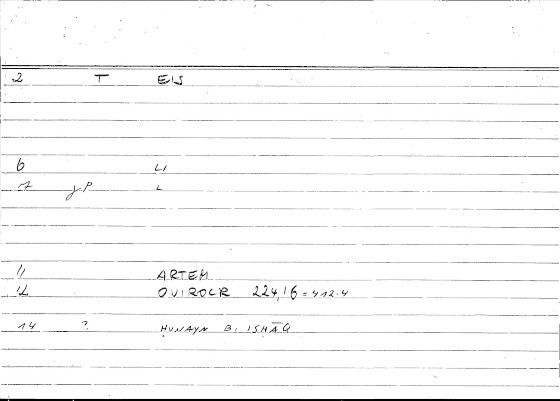 2 T EIS
6 LI
7 yP L
11 ARTEM
12 OVIROCR 224,16 = 412.4
14 ? ḤUNAYN B. ISḤĀQ